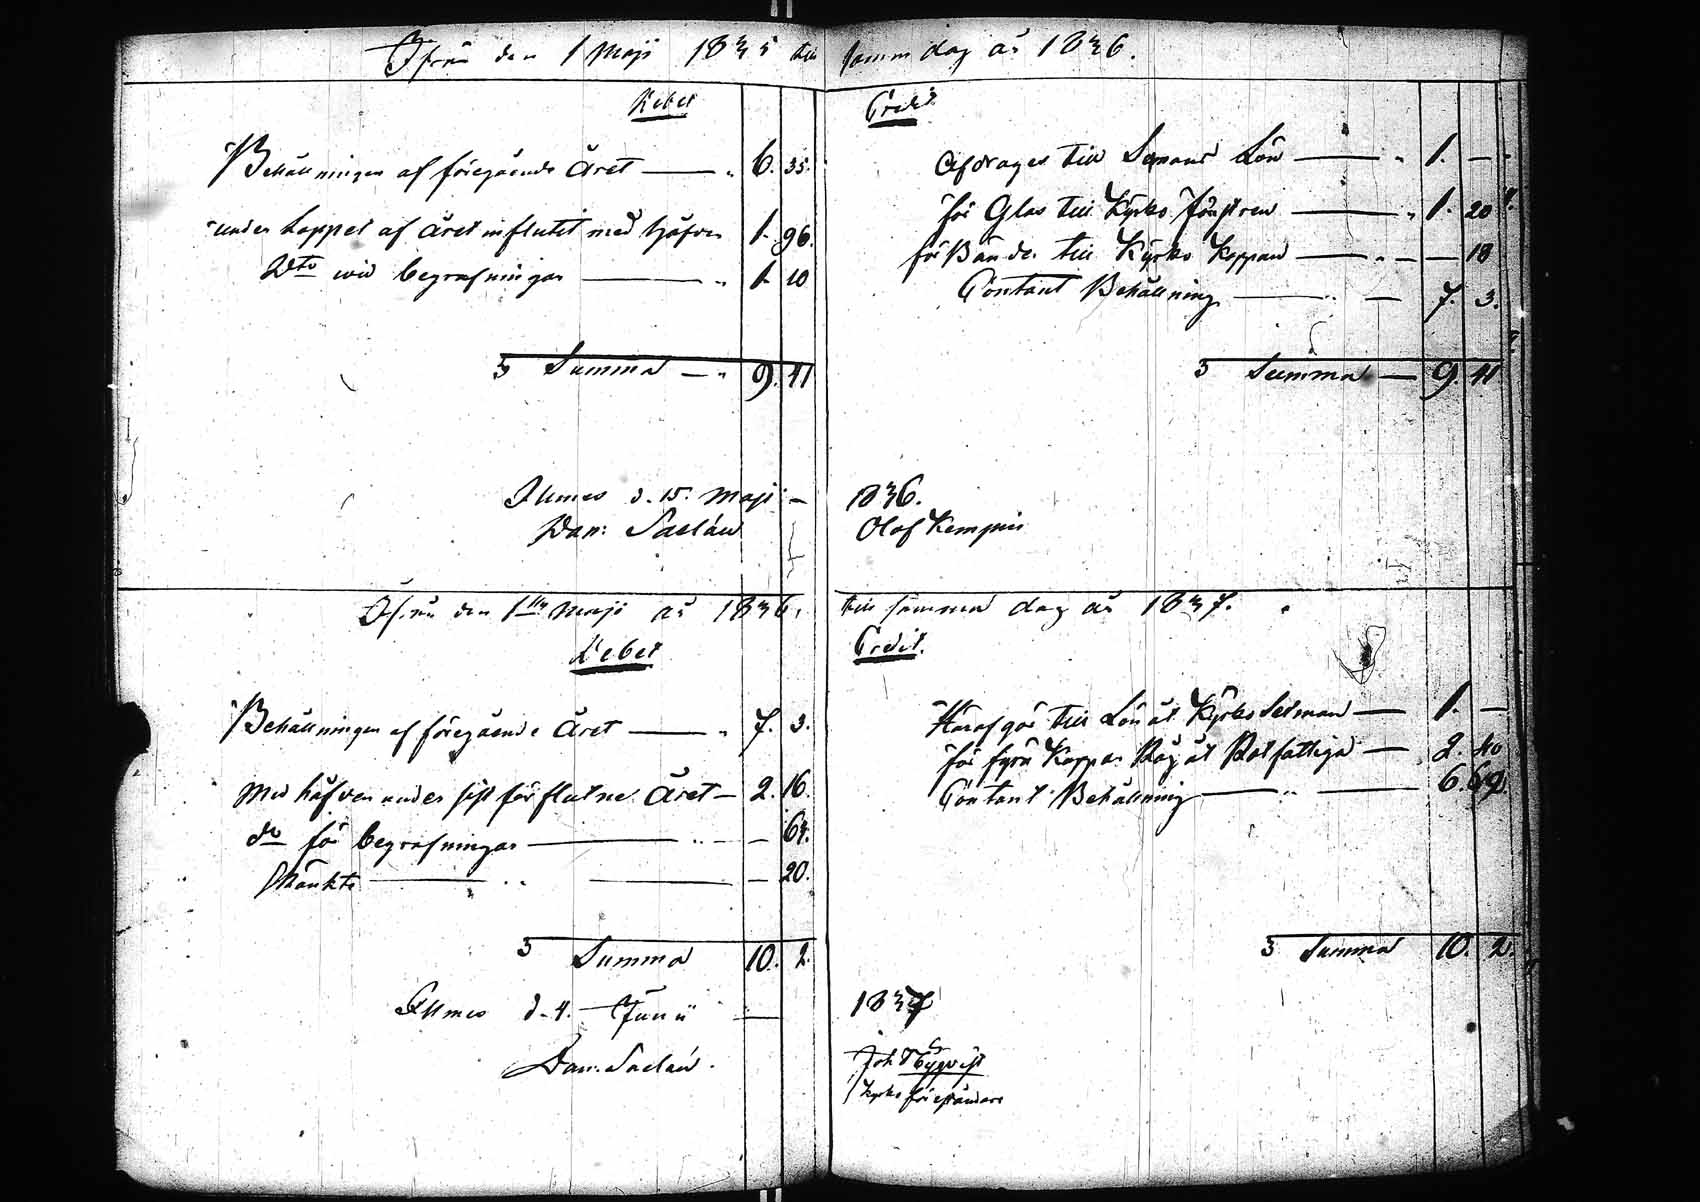 Ifrån den 1 Maji 1835 till samma dag år 1836.
Debet
Behållningen af föregående Året — " 6. 35.
under loppet af året influtit med håfven 1. 96.
Dto wid begrafningar — " 1. 10
S Summa — " 9. 41
d. 15. Maji —
Dan:
Credit
Afdrages till Lön — " 1. — "
för Glas till Kyrko fönstren — " 1. 20
för Bänder till Kyrko — " — 18
Contant Behållning — " — 7. 3.
S Summa — 9. 41
1836.
Olof
Ifrån den 1sta Maji år 1836. till samma dag år 1837.
Debet
Behållningen af föregående Året — " 7. 3.
Med håfven under sist förflutne Året — 2. 16.
do för begrafningar — " — 63.
Skänkte — " — 20.
S Summa 10. 2.
d. 4. Junii —
Dan:
Credit.
Häraf går till Lön åt Kyrko — 1. —
för fyra Kappar Råg åt Rotfattiga — 2. 40
Contant Behållning — " — 6. 62.
S Summa 10. 2.
1837
Joh
Kyrko föreståndare